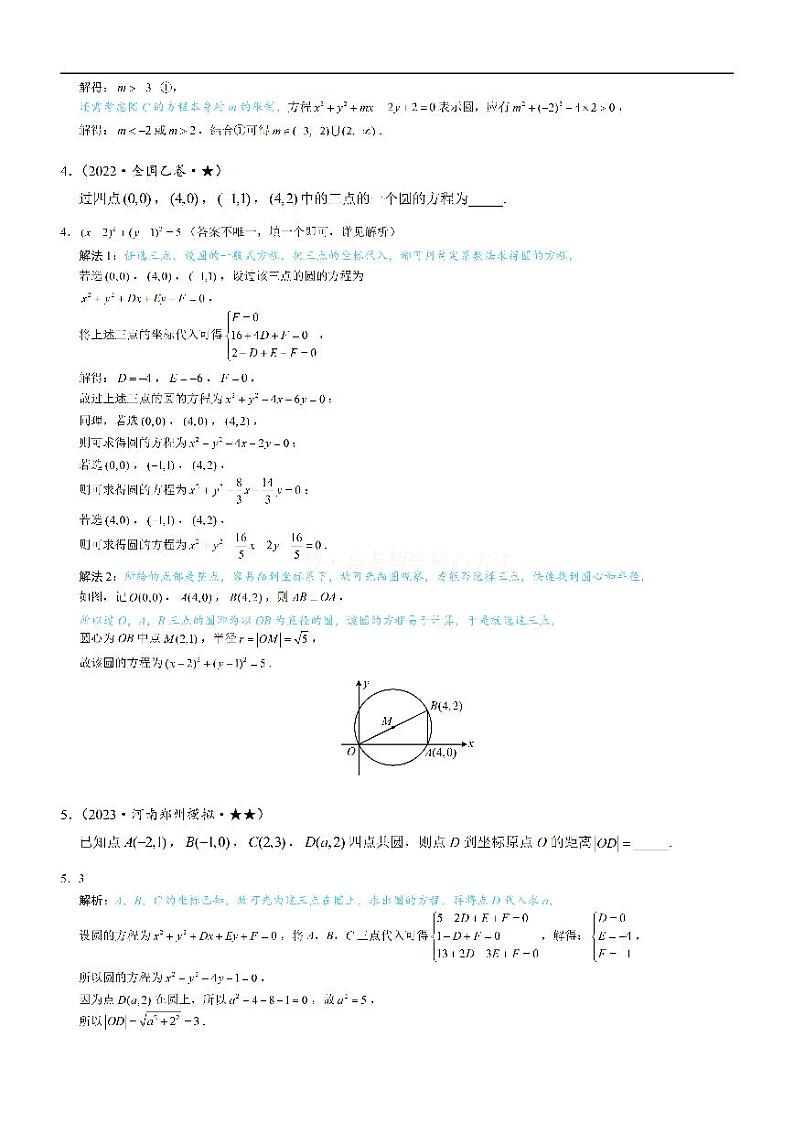 解得：m > -3 ①，
还需考虑圆 C 的方程本身对 m 的限制，方程 x² + y² + mx - 2y + 2 = 0 表示圆，应有 m² + (-2)² - 4×2 > 0，
解得：m < -2 或 m > 2，结合①可得 m∈(-3,-2)∪(2,+∞)．
4．（2022·全国乙卷·★）
过四点 (0,0)，(4,0)，(-1,1)，(4,2) 中的三点的一个圆的方程为_____．
4．(x-2)² + (y-1)² = 5（答案不唯一，填一个即可，详见解析）
解法 1：任选三点，设圆的一般式方程，把三点的坐标代入，都可用待定系数法求得圆的方程，
若选 (0,0)，(4,0)，(-1,1)，设过该三点的圆的方程为
x² + y² + Dx + Ey + F = 0，
将上述三点的坐标代入可得 {F = 0
16 + 4D + F = 0，
2 - D + E + F = 0
解得：D = -4，E = -6，F = 0，
故过上述三点的圆的方程为 x² + y² - 4x - 6y = 0；
同理，若选 (0,0)，(4,0)，(4,2)，
则可求得圆的方程为 x² + y² - 4x - 2y = 0；
若选 (0,0)，(-1,1)，(4,2)，
则可求得圆的方程为 x² + y² - 8/3 x - 14/3 y = 0；
若选 (4,0)，(-1,1)，(4,2)，
则可求得圆的方程为 x² + y² - 16/5 x - 2y - 16/5 = 0．
解法 2：所给的点都是整点，容易画到坐标系下，故可先画图观察，看能否选择三点，快速找到圆心和半径，
如图，记 O(0,0)，A(4,0)，B(4,2)，则 AB⊥OA，
所以过 O，A，B 三点的圆即为以 OB 为直径的圆，该圆的方程易于计算，于是就选这三点，
圆心为 OB 中点 M(2,1)，半径 r = |OM| = √5，
故该圆的方程为 (x-2)² + (y-1)² = 5．
y
B(4,2)
M
O
A(4,0)
x
5．（2023·河南郑州模拟·★★）
已知点 A(-2,1)，B(-1,0)，C(2,3)，D(a,2) 四点共圆，则点 D 到坐标原点 O 的距离 |OD| = _____．
5．3
解析：A，B，C 的坐标已知，故可先由这三点在圆上，求出圆的方程，再将点 D 代入求 a，
设圆的方程为 x² + y² + Dx + Ey + F = 0，将 A，B，C 三点代入可得 {5 - 2D + E + F = 0
1 - D + F = 0
13 + 2D + 3E + F = 0，解得：{D = 0
E = -4，
F = -1
所以圆的方程为 x² + y² - 4y - 1 = 0，
因为点 D(a,2) 在圆上，所以 a² + 4 - 8 - 1 = 0，故 a² = 5，
所以 |OD| = √(a² + 2²) = 3．